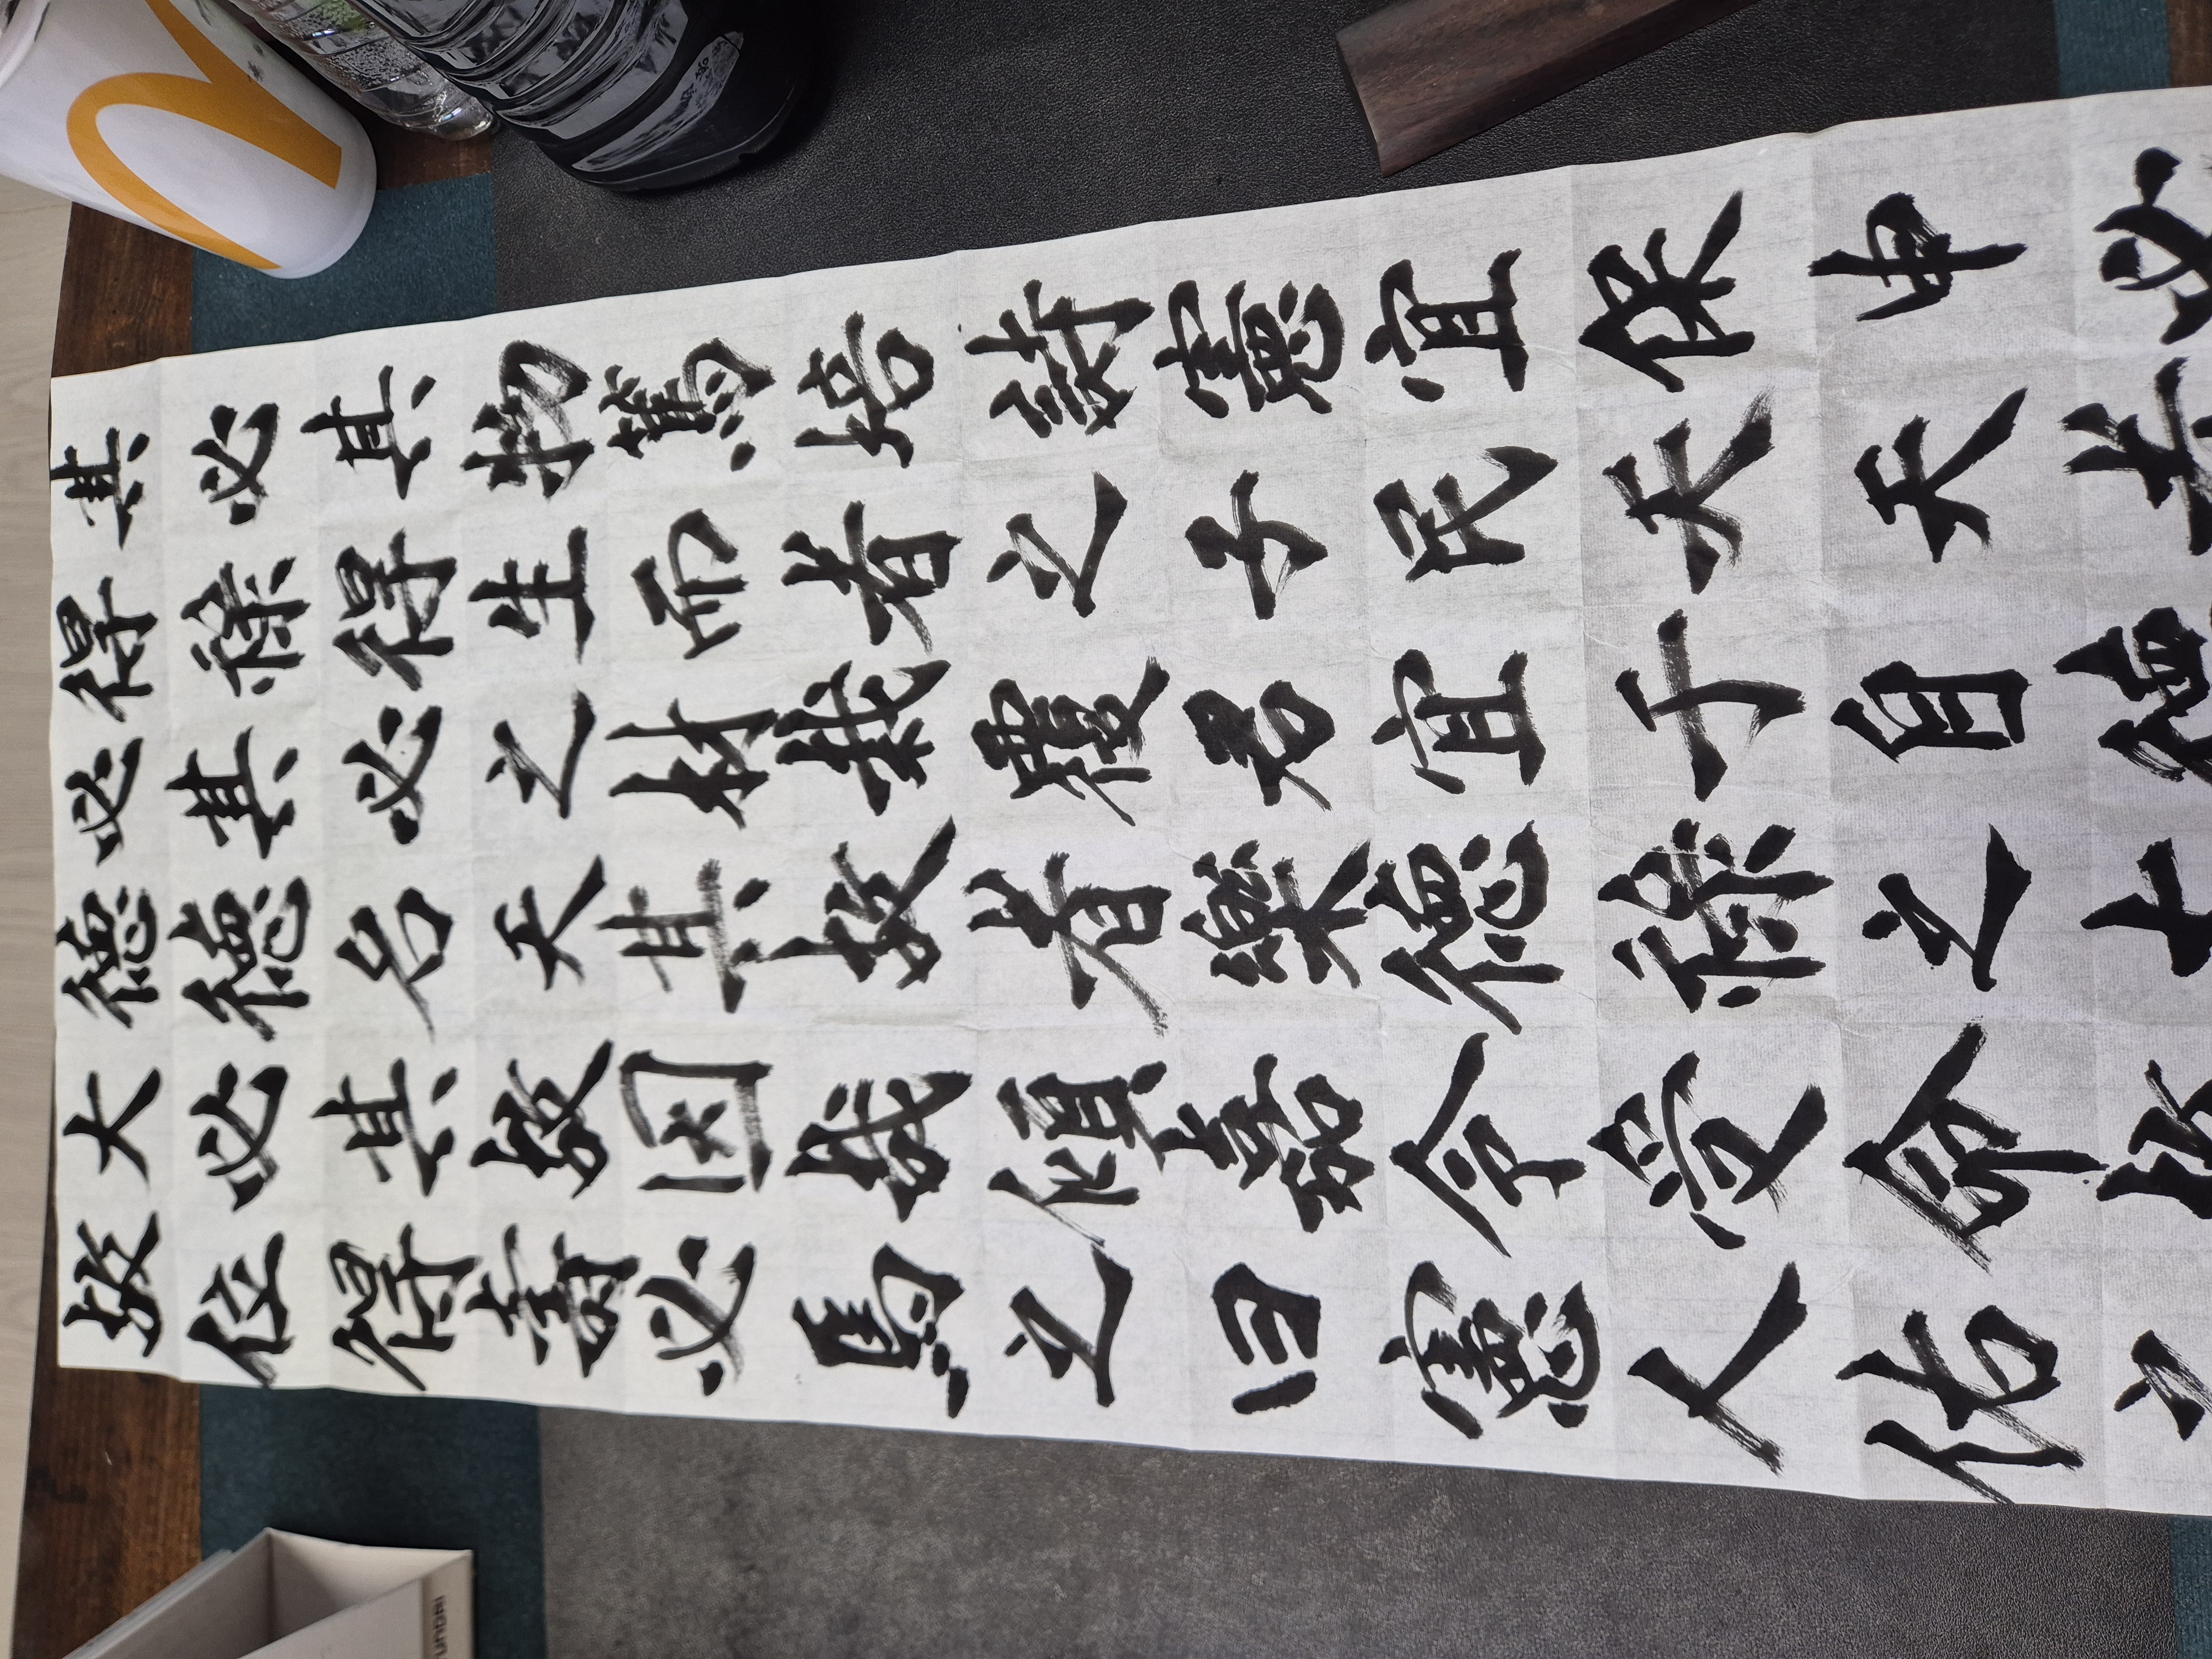 故大德必得其
位必德其祿必
得其名必得其
壽故天之生物
必因其材而篤
馬哉故栽者培
之傾者覆之詩
曰嘉樂君子憲
憲令德宜民宜
人受祿于天保
佑命之自天申
之故大德者必